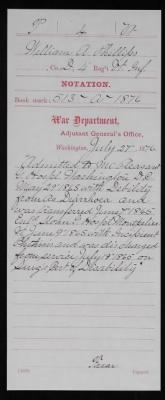 P 4 Vt
William A. Phillips
Co. D, 4 Reg't Vt. Inf.
NOTATION.
Book mark: 513-A-1876
War Department,
Adjutant General's Office,
Washington, July 27 1876
Admitted to Mt Pleasant
G. Hospl Washington D.C.
May 29 1865 with Debility
from Ac. Diarrhoea and
was transferred June 7 1865.
Ent'd Hospl Montpelier
Vt. June 9 1865 with Incipient
Phthisis and was discharged
from service July 18 1865 on
Surg's Cert. of Disability
Copyist.